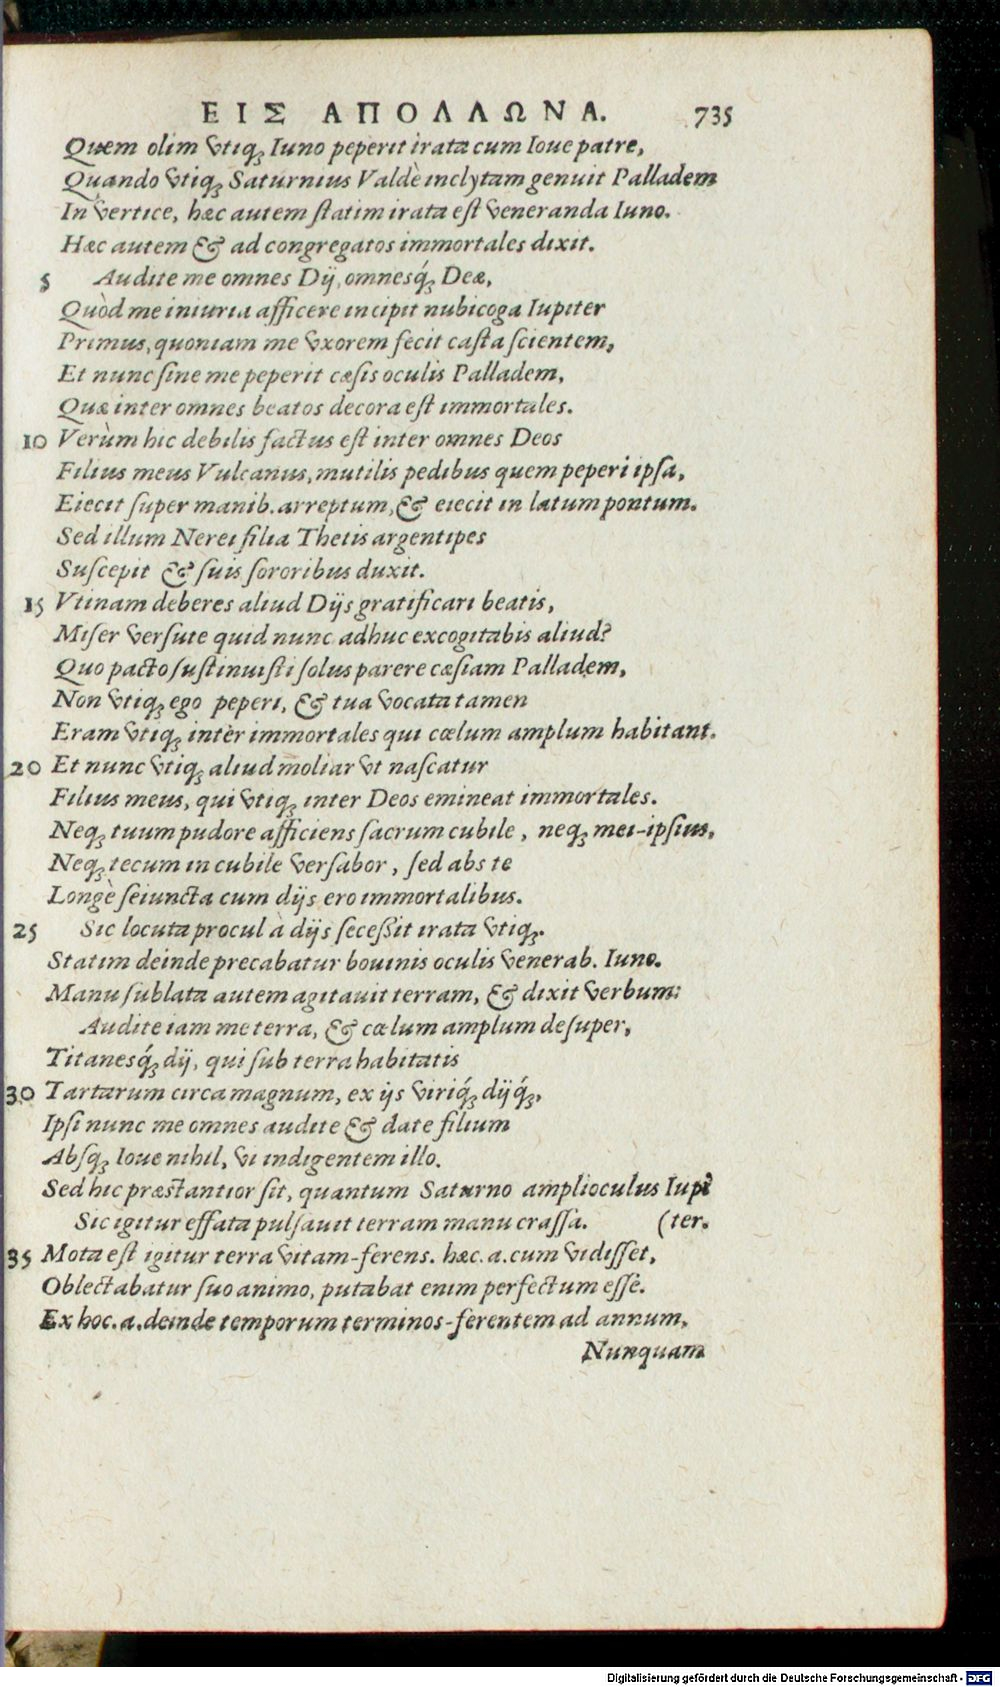 ΕΙΣ ΑΠΟΛΛΩΝΑ. 735
Quem olim vtiq; Iuno peperit irata cum Ioue patre,
Quando vtiq; Saturnius Valdè inclytam genuit Palladem
In vertice, hæc autem ſtatim irata eſt veneranda Iuno.
Hæc autem & ad congregatos immortales dixit.
5 Audite me omnes Dij, omnesq́; Deæ,
Quòd me iniuria afficere incipit nubicoga Iupiter
Primus, quoniam me vxorem fecit caſta ſcientem,
Et nunc ſine me peperit cæſis oculis Palladem,
Quæ inter omnes beatos decora eſt immortales.
10 Verùm hic debilis factus eſt inter omnes Deos
Filius meus Vulcanus, mutilis pedibus quem peperi ipſa,
Eiecit ſuper manib. arreptum, & eiecit in latum pontum.
Sed illum Nerei filia Thetis argentipes
Suſcepit & ſuis ſororibus duxit.
15 Vtinam deberes aliud Dijs gratificari beatis,
Miſer verſute quid nunc adhuc excogitabis aliud?
Quo pacto ſuſtinuiſti ſolus parere cæſiam Palladem,
Non vtiq; ego peperi, & tua vocata tamen
Eram vtiq; intèr immortales qui cœlum amplum habitant.
20 Et nunc vtiq; aliud moliar vt naſcatur
Filius meus, qui vtiq; inter Deos emineat immortales.
Neq; tuum pudore afficiens ſacrum cubile, neq; mei-ipſius,
Neq; tecum in cubile verſabor, ſed abs te
Longè ſeiuncta cum dijs ero immortalibus.
25 Sic locuta procul à dijs ſeceſſit irata vtiq;.
Statim deinde precabatur bouinis oculis venerab. Iuno.
Manu ſublata autem agitauit terram, & dixit verbum:
Audite iam me terra, & cœlum amplum deſuper,
Titanesq́; dij, qui ſub terra habitatis
30 Tartarum circa magnum, ex ijs viriq́; dijq́;,
Ipſi nunc me omnes audite & date filium
Abſq; Ioue nihil, vi indigentem illo.
Sed hic præſtantior ſit, quantum Saturno amplioculus Iupi
Sic igitur effata pulſauit terram manu craſſa. (ter.
35 Mota eſt igitur terra vitam-ferens. hæc. a. cum vidiſſet,
Oblectabatur ſuo animo, putabat enim perfectum eſſè.
Ex hoc. a. deinde temporum terminos-ferentem ad annum,
Nunquam
Digitalisierung gefördert durch die Deutsche Forschungsgemeinschaft - DFG